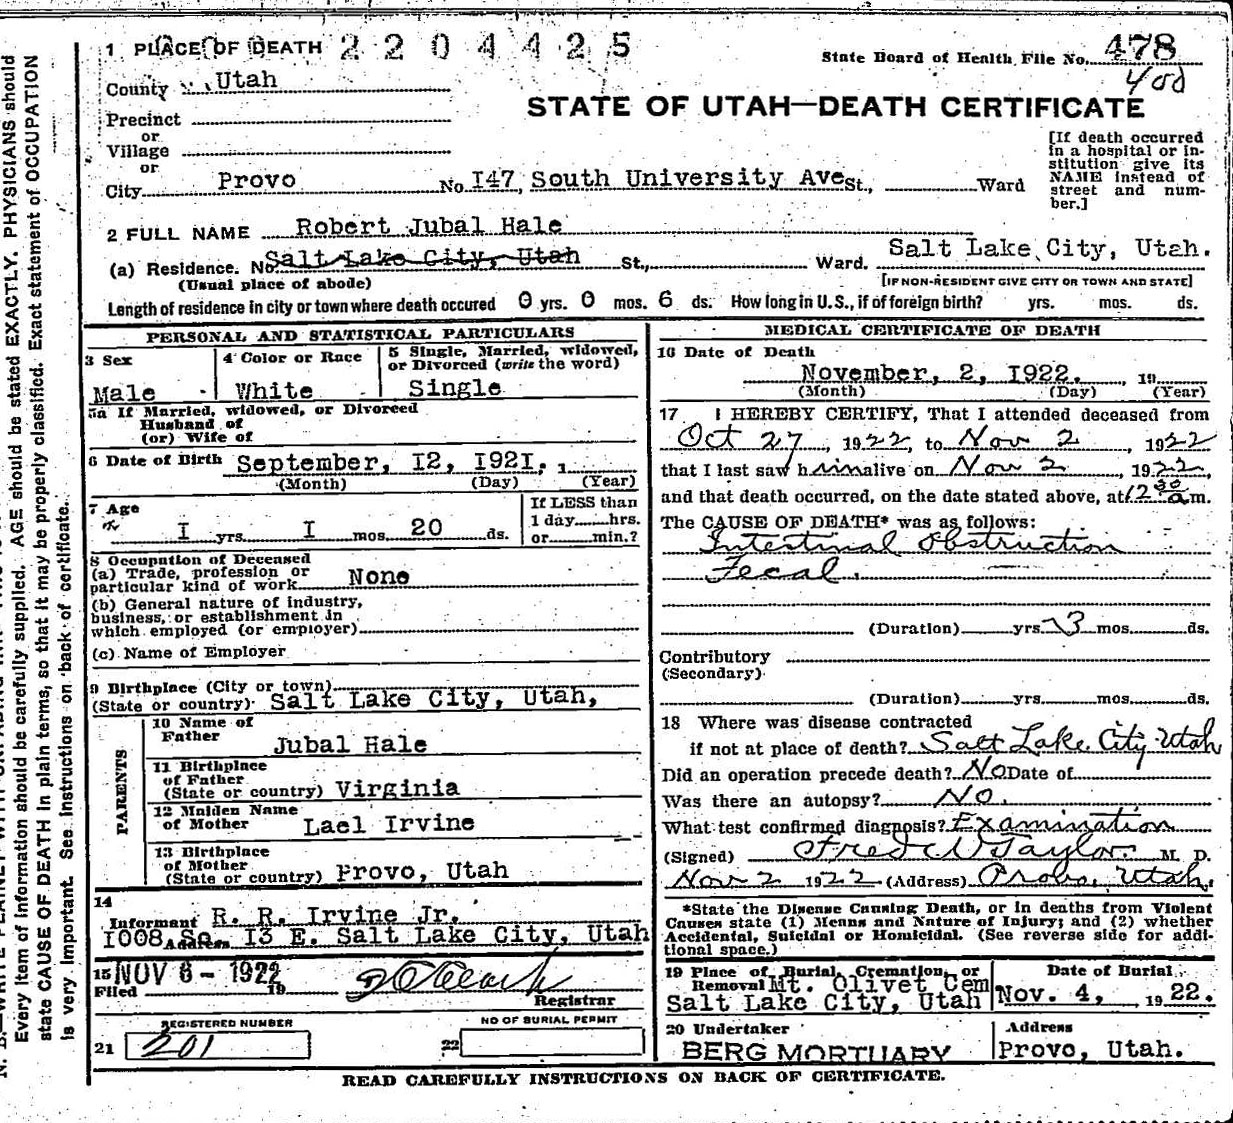 1 PLACE OF DEATH 2 2 0 4 4 2 5
State Board of Health File No. 478
400
County Utah
STATE OF UTAH—DEATH CERTIFICATE
Precinct
or
Village
or
City Provo No. I47 South University Ave St., Ward
[If death occurred in a hospital or institution give its NAME instead of street and number.]
2 FULL NAME Robert Jubal Hale
(a) Residence. No. Salt Lake City, Utah St., Ward. Salt Lake City, Utah.
(Usual place of abode) [IF NON-RESIDENT GIVE CITY OR TOWN AND STATE]
Length of residence in city or town where death occured 0 yrs. 0 mos. 6 ds. How long in U.S., if of foreign birth? yrs. mos. ds.
PERSONAL AND STATISTICAL PARTICULARS
3 Sex
Male
4 Color or Race
White
5 Single, Married, widowed, or Divorced (write the word)
Single
5a If Married, widowed, or Divorced
Husband of
(or) Wife of
6 Date of Birth September, I2, I92I.
(Month) (Day) (Year)
7 Age
I yrs. I mos. 20 ds.
If LESS than
1 day hrs.
or min.?
8 Occupation of Deceased
(a) Trade, profession or
particular kind of work None
(b) General nature of industry,
business, or establishment in
which employed (or employer)
(c) Name of Employer
9 Birthplace (City or town)
(State or country) Salt Lake City, Utah,
PARENTS
10 Name of
Father Jubal Hale
11 Birthplace
of Father
(State or country) Virginia
12 Maiden Name
of Mother Lael Irvine
13 Birthplace
of Mother
(State or country) Provo, Utah
14
Informant R. R. Irvine Jr.
Address I008 So. I3 E. Salt Lake City, Utah
15 NOV 6 - 1922
Filed 19
Registrar
REGISTERED NUMBER
21 201
NO OF BURIAL PERMIT
22
MEDICAL CERTIFICATE OF DEATH
16 Date of Death
November, 2, I922. 19
(Month) (Day) (Year)
17 I HEREBY CERTIFY, That I attended deceased from
Oct 27, 1922 to Nov 2, 1922
that I last saw h im alive on Nov 2, 1922,
and that death occurred, on the date stated above, at 12 30 a m.
The CAUSE OF DEATH* was as follows:
Intestinal Obstruction
Fecal.
(Duration) yrs. 3 mos. ds.
Contributory
(Secondary)
(Duration) yrs. mos. ds.
18 Where was disease contracted
if not at place of death? Salt Lake City Utah
Did an operation precede death? No Date of
Was there an autopsy? No.
What test confirmed diagnosis? Examination
(Signed) Fred W Taylor. M. D.
Nov 2 1922 (Address) Provo, Utah.
*State the Disease Causing Death, or in deaths from Violent
Causes state (1) Means and Nature of Injury; and (2) whether
Accidental, Suicidal or Homicidal. (See reverse side for additional space.)
19 Place of Burial, Cremation, or
Removal Mt. Olivet Cem
Salt Lake City, Utah
Date of Burial
Nov. 4, 1922.
20 Undertaker
BERG MORTUARY
Address
Provo, Utah.
READ CAREFULLY INSTRUCTIONS ON BACK OF CERTIFICATE.
Every item of information should be carefully supplied. AGE should be stated EXACTLY. PHYSICIANS should
state CAUSE OF DEATH in plain terms, so that it may be properly classified. Exact statement of OCCUPATION
is very important. See instructions on back of certificate.